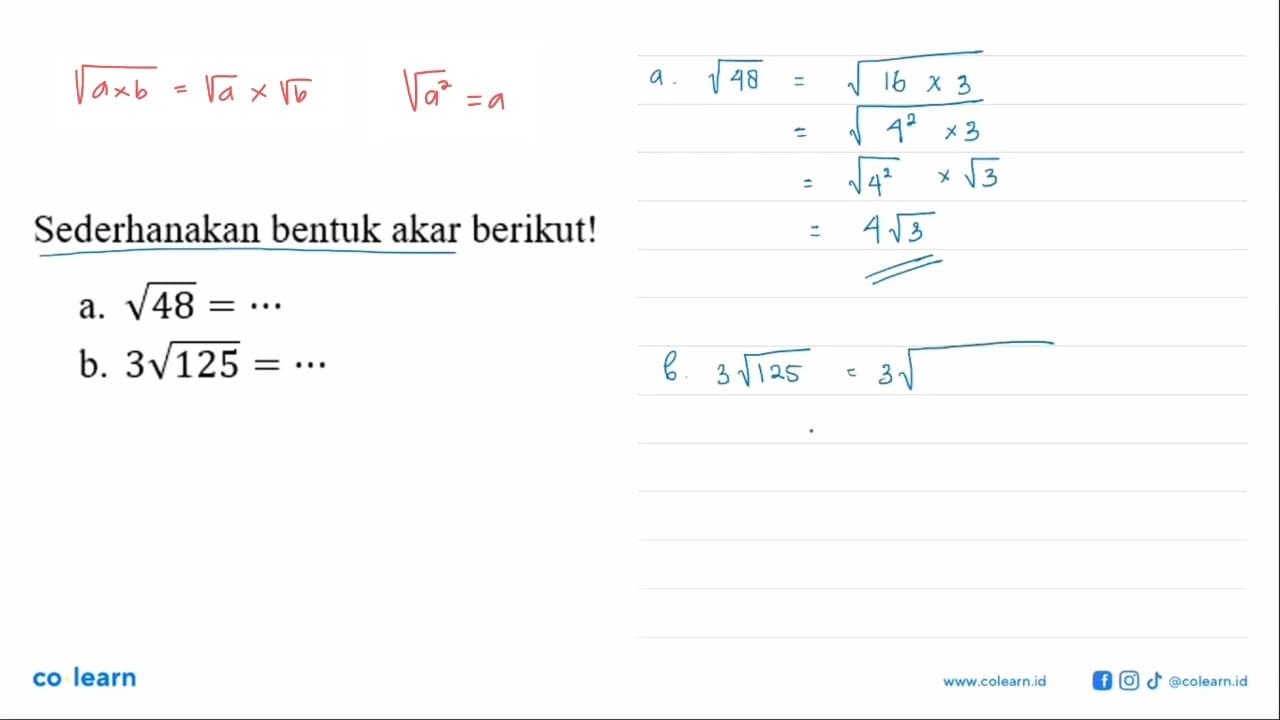 √(a×b) = √a × √b
√a² = a
Sederhanakan bentuk akar berikut!
a. √48 = ...
b. 3√125 = ...
a. √48 = √(16 × 3)
= √(4² × 3)
= √4² × √3
= 4√3
b. 3√125 = 3√
co learn
www.colearn.id
@colearn.id